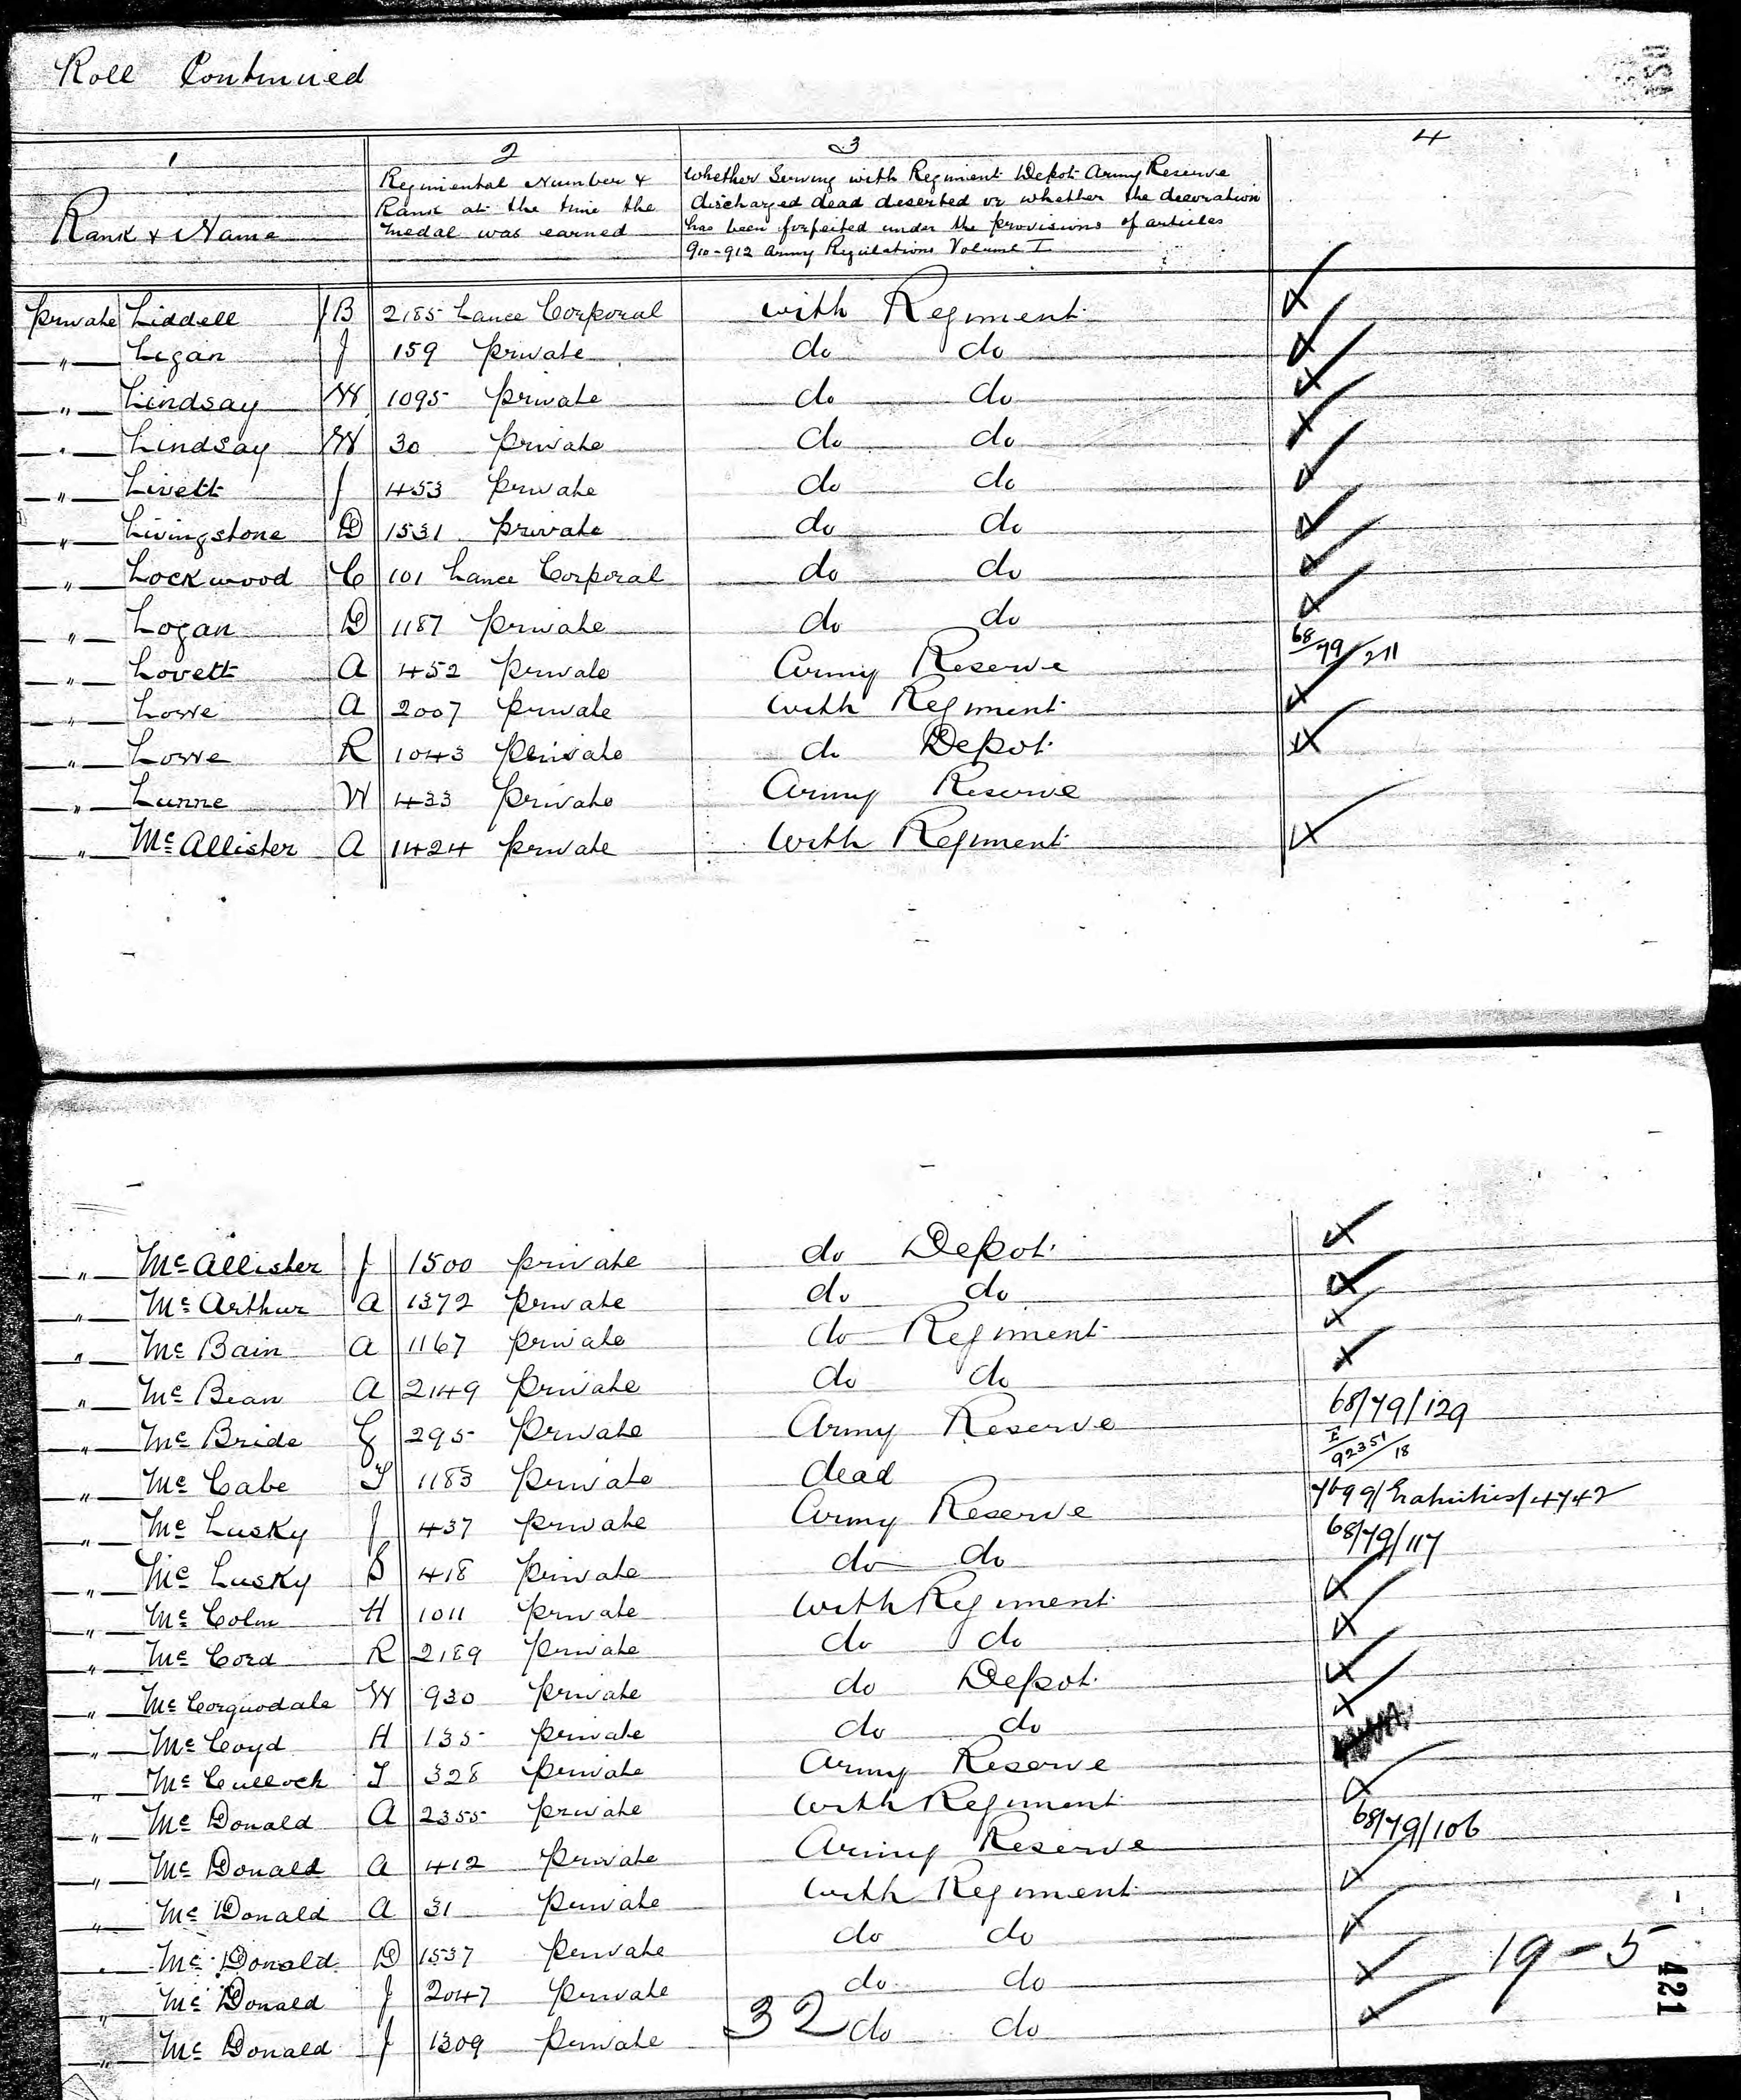 Roll Continued
1 2 3 4
Rank & Name
Regimental Number &
Rank at the time the
medal was earned
Whether Serving with Regiment Depot Army Reserve
discharged dead deserted or whether the decoration
has been forfeited under the provisions of articles
910-912 Army Regulations Volume I
Private Liddell J B 2185 Lance Corporal with Regiment
" Ligan J 159 Private do do
" Lindsay W 1095 Private do do
" Lindsay W 30 Private do do
" Livett J 453 Private do do
" Livingstone D 1531 Private do do
" Lockwood C 101 Lance Corporal do do
" Logan D 1187 Private do do
" Lovett A 452 Private Army Reserve 68/79/211
" Lowe A 2007 Private with Regiment
" Lowe R 1043 Private do Depot
" Lunne W 433 Private Army Reserve
" Mc Allister A 1424 Private With Regiment
" Mc Allister J 1500 Private do Depot
" Mc Arthur A 1372 Private do do
" Mc Bain A 1167 Private do Regiment
" Mc Bean A 2149 Private do do
" Mc Bride G 295 Private Army Reserve 68/79/129
" Mc Cabe T 1183 Private dead E/92351/18
" Mc Lusky J 437 Private Army Reserve 7699/Gratuities/4742
" Mc Lusky S 418 Private do do 68/79/117
" Mc Colm H 1011 Private With Regiment
" Mc Cord R 2189 Private do do
" Mc Corquodale W 930 Private do Depot
" Mc Coyd H 135 Private do do
" Mc Cullock T 328 Private Army Reserve
" Mc Donald A 2355 Private With Regiment
" Mc Donald A 412 Private Army Reserve 68/79/106
" Mc Donald A 31 Private With Regiment
" Mc Donald D 1537 Private do do
" Mc Donald J 2047 Private do do 19-5
" Mc Donald J 1309 Private 32 do do
421